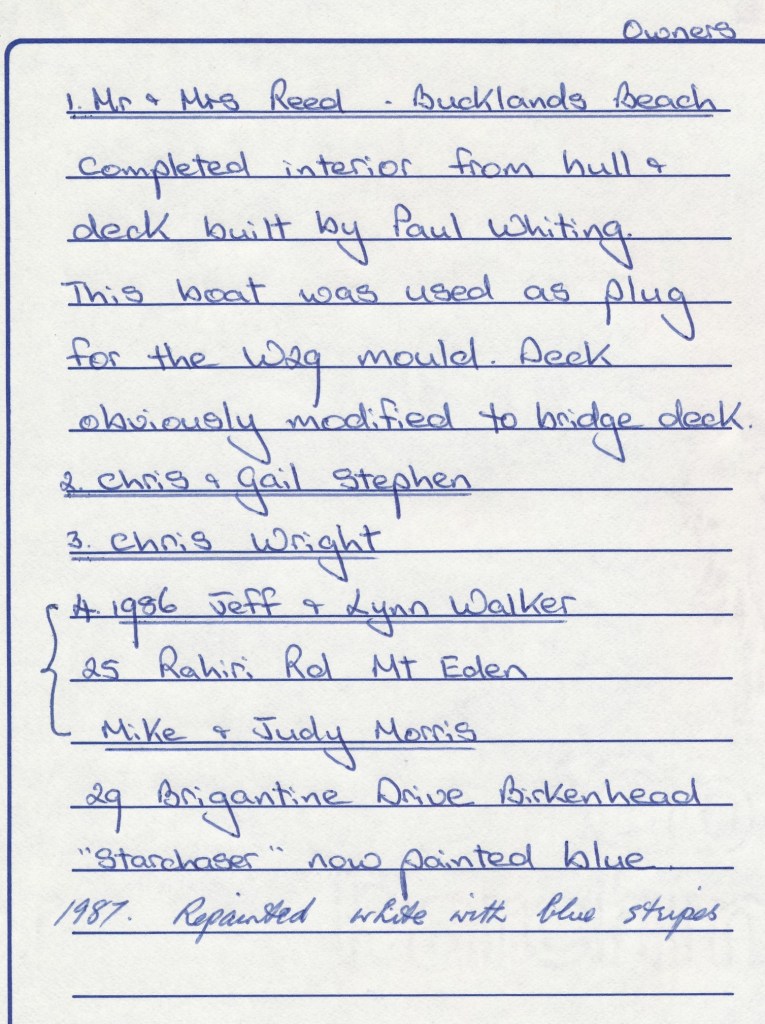 Owners
1. Mr & Mrs Reed - Bucklands Beach
Completed interior from hull &
deck built by Paul Whiting.
This boat was used as plug
for the W29 mould. Deck
obviously modified to bridge deck.
2. Chris & Gail Stephen
3. Chris Wright
4. 1986 Jeff & Lynn Walker
25 Rahiri Rd Mt Eden
Mike & Judy Morris
29 Brigantine Drive Birkenhead
"Starchaser" now painted blue.
1987. Repainted white with blue stripes